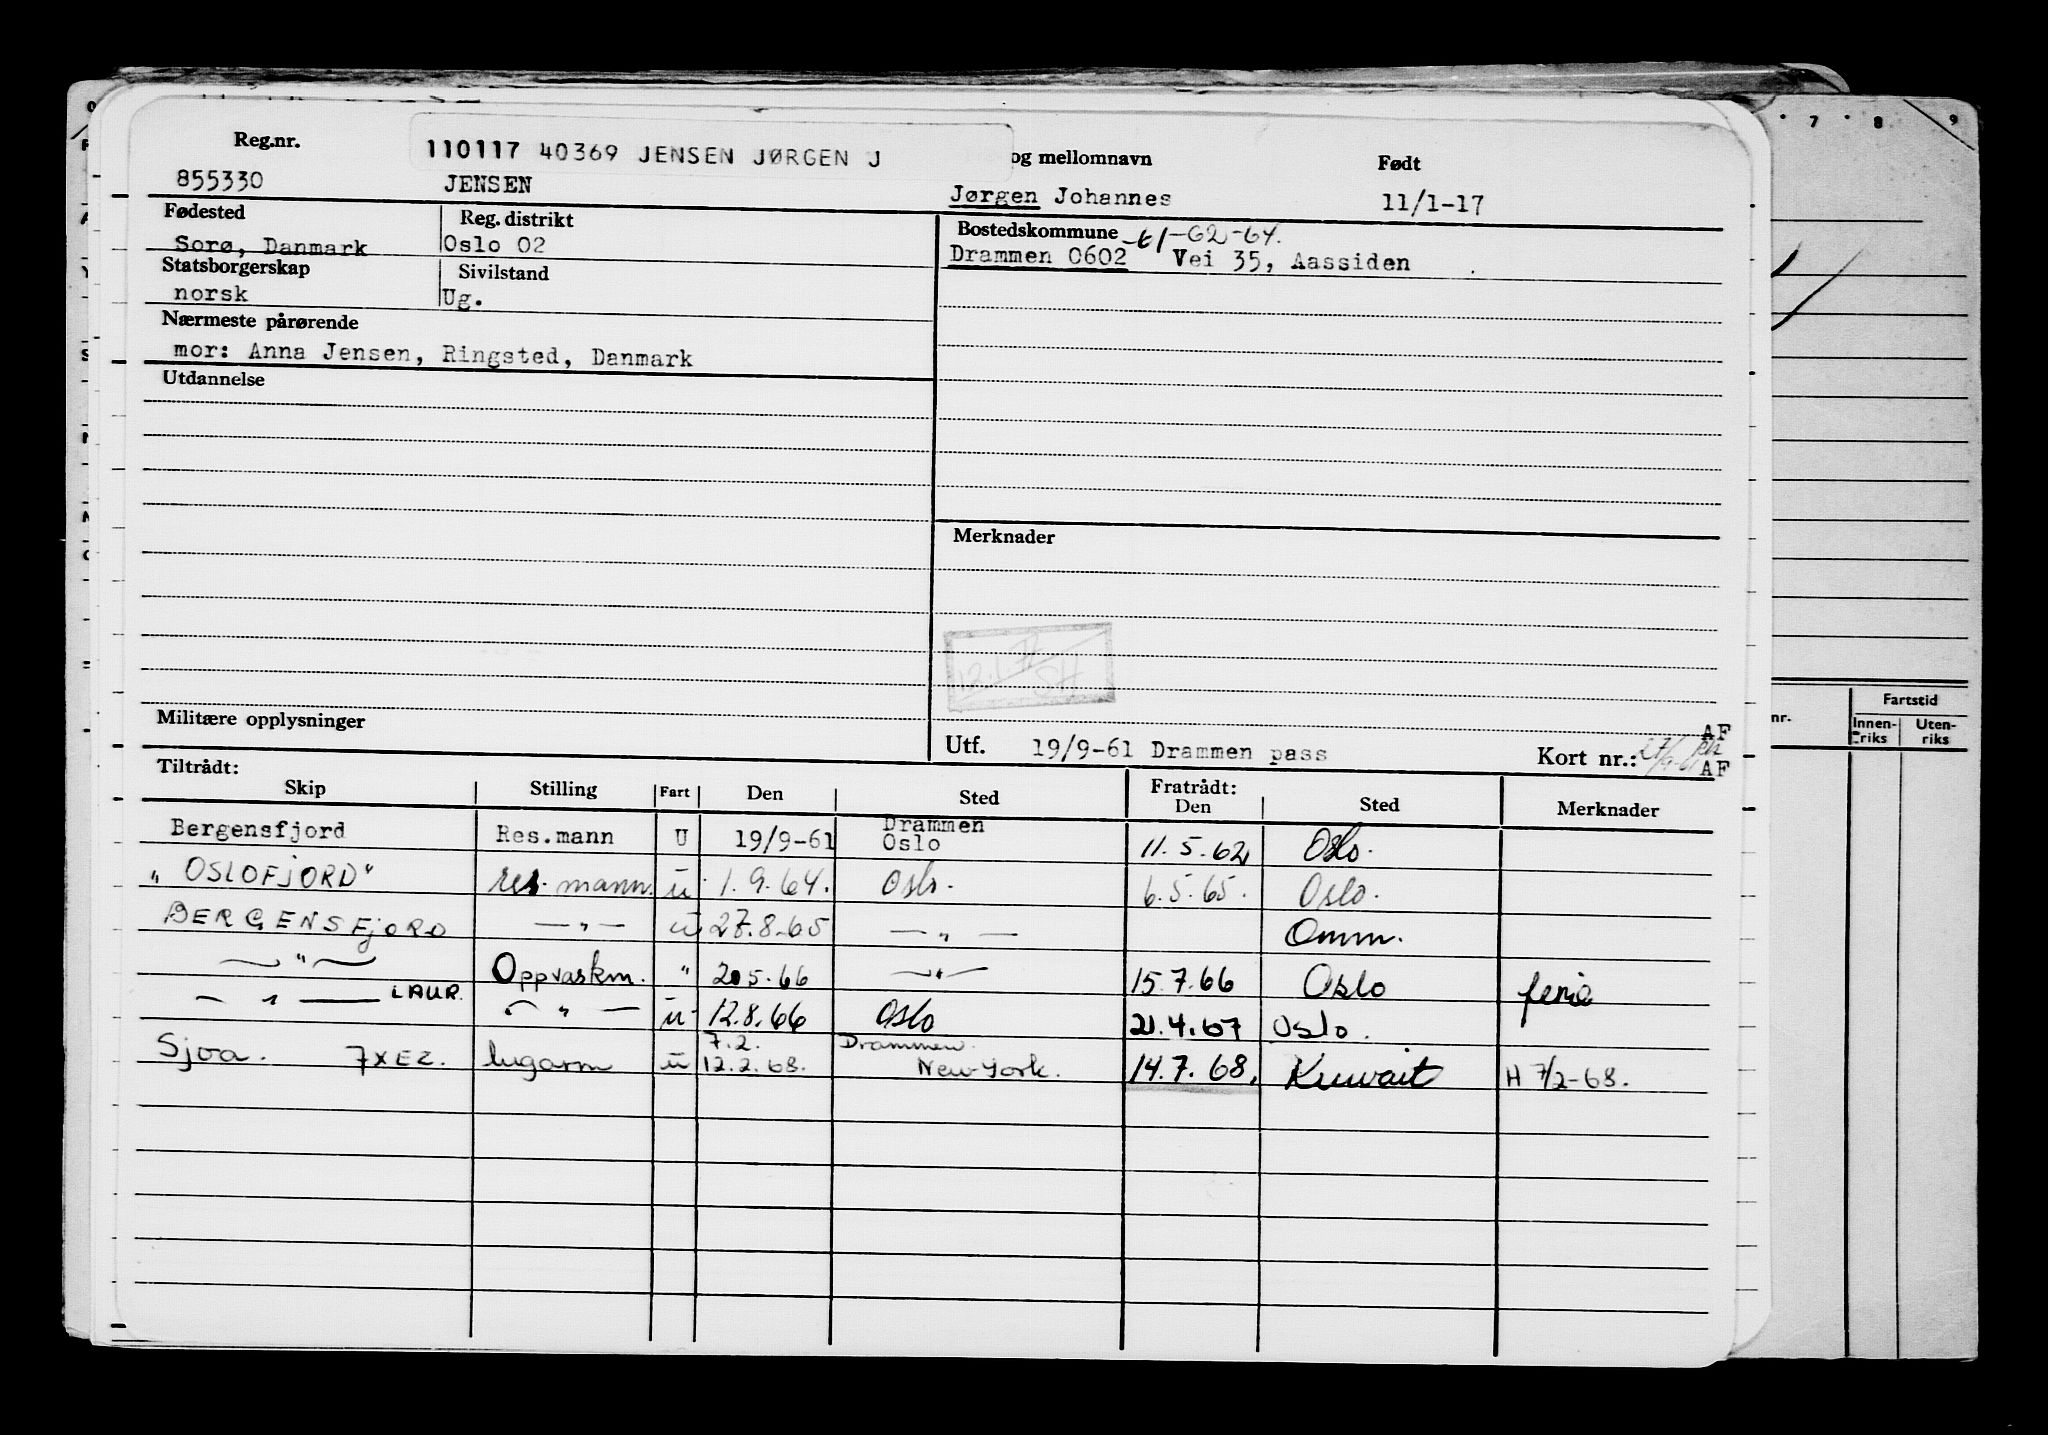 Reg.nr. 110117 40369 JENSEN JØRGEN J og mellomnavn Født
855330 JENSEN Jørgen Johannes 11/1-17
Fødested Reg. distrikt Bostedskommune -61-62-64.
Sorø, Danmark Oslo 02 Drammen 0602 Vei 35, Aassiden
Statsborgerskap Sivilstand
norsk Ug.
Nærmeste pårørende
mor: Anna Jensen, Ringsted, Danmark
Utdannelse
Merknader
Militære opplysninger
Utf. 19/9-61 Drammen pass Kort nr.: AF
AF
Tiltrådt: Fratrådt:
Skip Stilling Fart Den Sted Den Sted Merknader
Bergensfjord Res.mann U 19/9-61 Drammen Oslo 11.5.62 Oslo.
"OSLOFJORD" res. mann. u 1.9.64. Oslo. 6.5.65. Oslo.
BERGENSFJORD — " — u 27.8.65 — " — Omm.
— " — Oppvaskm. " 20.5.66 — " — 15.7.66 Oslo ferie
— " — LAUR. — " — u 12.8.66 Oslo 21.4.67 Oslo.
Sjoa. 7XEZ. lugarm u 7.2. Drammen. 14.7.68. Kuwait H 7/2-68.
12.2.68. New York.
7 8 9
nr. Fartstid
Innen-riks Uten-riks